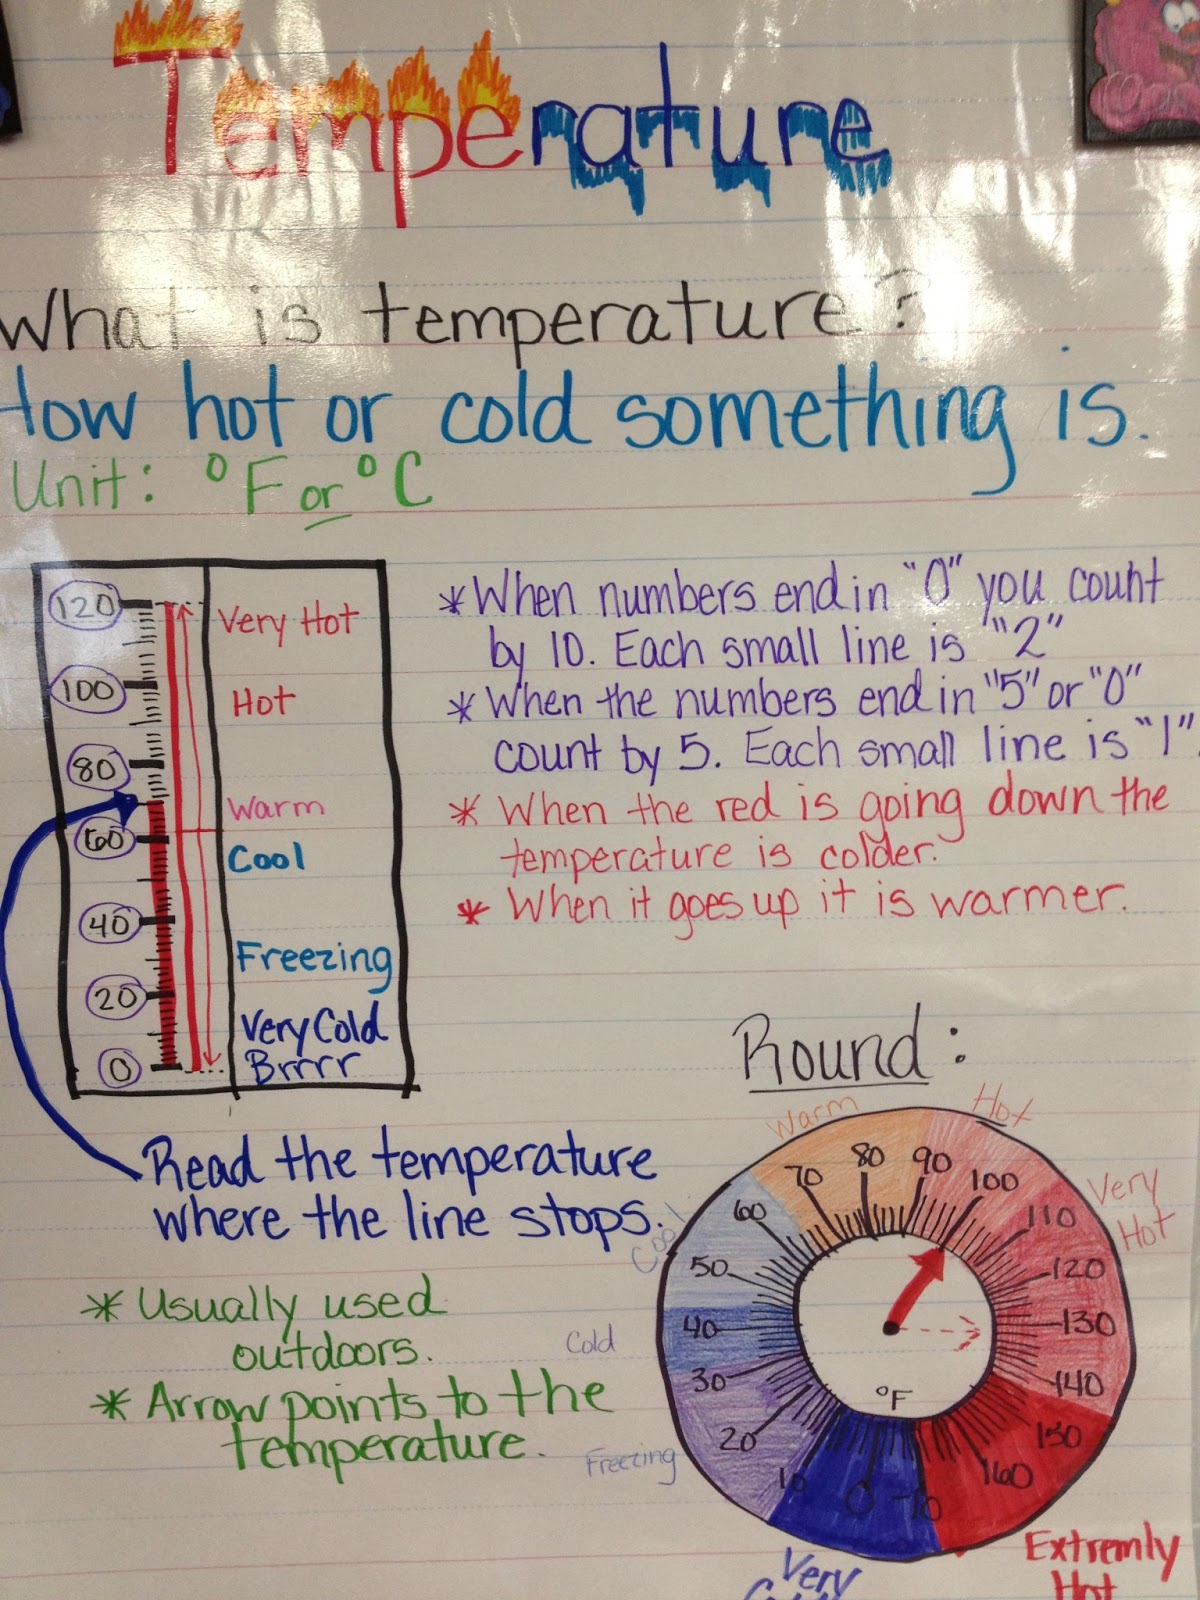 Temperature
What is temperature?
How hot or cold something is.
Unit: °F or °C
120
100
80
60
40
20
0
Very Hot
Hot
Warm
Cool
Freezing
Very Cold
Brrrr
*When numbers end in "0" you count
by 10. Each small line is "2"
*When the numbers end in "5" or "0"
count by 5. Each small line is "1".
* When the red is going down the
temperature is colder.
* When it goes up it is warmer.
Read the temperature
where the line stops.
* Usually used
outdoors.
* Arrow points to the
temperature.
Round:
Warm
Hot
Very
Hot
Cool
Cold
Freezing
Very
Extremly
Hot
70
80
90
100
110
120
130
140
150
160
60
50
40
30
20
10
0
-10
°F